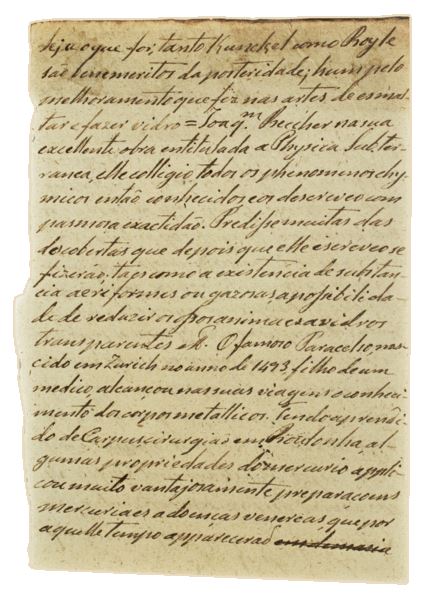 seja o que for, tanto Kunckel como Boyle
são benemeritos da posteridade; hum pelo
melhoramento que fez nas artes de esmal-
tar e fazer vidro = Joaq.m Beccher na sua
excellente obra entitulada a Physica Subter-
ranea, elle colligio todos os phenomenos chy-
micos então conhecidos e os descreveo com
pasmosa exactidão. Predisse muitas das
descobertas que depois que elle escreveo se
fizerão: taes como a existencia de substan-
cias aeriformes ou gazosas a possibilida-
de de reduzir os ossos animaes a vidros
transparentes &. O famoso Paracelso, nas-
cido em Zurich no anno de 1493 filho de um
medico, alcançou nas suas viagens o conheci-
mento dos corpos metallicos. Tendo aprendi-
do de Carpus cirurgião em Bolonha al-
gumas propriedades do mercurio appli-
cou muito vantajosamente preparacoens
mercuriaes a doencas venereas que por
aquelle tempo apparecerão